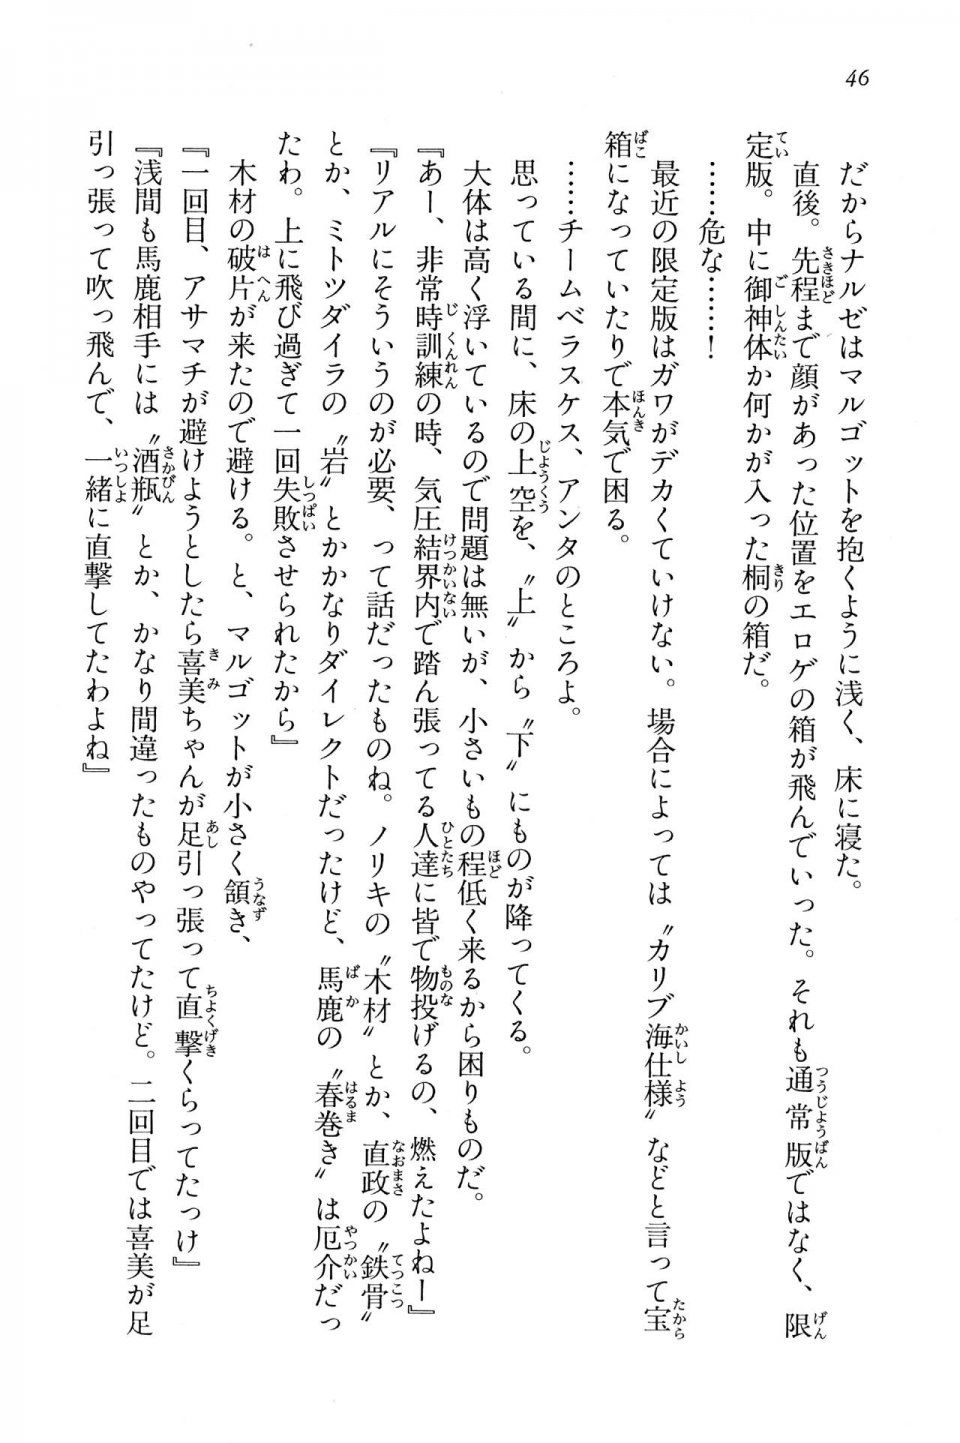 46
だからナルゼはマルゴットを抱くように浅く、床に寝た。
直後。先程まで顔があった位置をエロゲの箱が飛んでいった。それも通常版ではなく、限
定版。中に御神体か何かが入った桐の箱だ。
……危な……！
最近の限定版はガワがデカくていけない。場合によっては〝カリブ海仕様〟などと言って宝
箱になっていたりで本気で困る。
……チームベラスケス、アンタのところよ。
思っている間に、床の上空を、〝上〟から〝下〟にものが降ってくる。
大体は高く浮いているので問題は無いが、小さいもの程低く来るから困りものだ。
『あー、非常時訓練の時、気圧結界内で踏ん張ってる人達に皆で物投げるの、燃えたよねー』
『リアルにそういうのが必要、って話だったものね。ノリキの〝木材〟とか、直政の〝鉄骨〟
とか、ミトツダイラの〝岩〟とかかなりダイレクトだったけど、馬鹿の〝春巻き〟は厄介だっ
たわ。上に飛び過ぎて一回失敗させられたから』
木材の破片が来たので避ける。と、マルゴットが小さく頷き、
『一回目、アサマチが避けようとしたら喜美ちゃんが足引っ張って直撃くらってたっけ』
『浅間も馬鹿相手には〝酒瓶〟とか、かなり間違ったものやってたけど。二回目では喜美が足
引っ張って吹っ飛んで、一緒に直撃してたわよね』